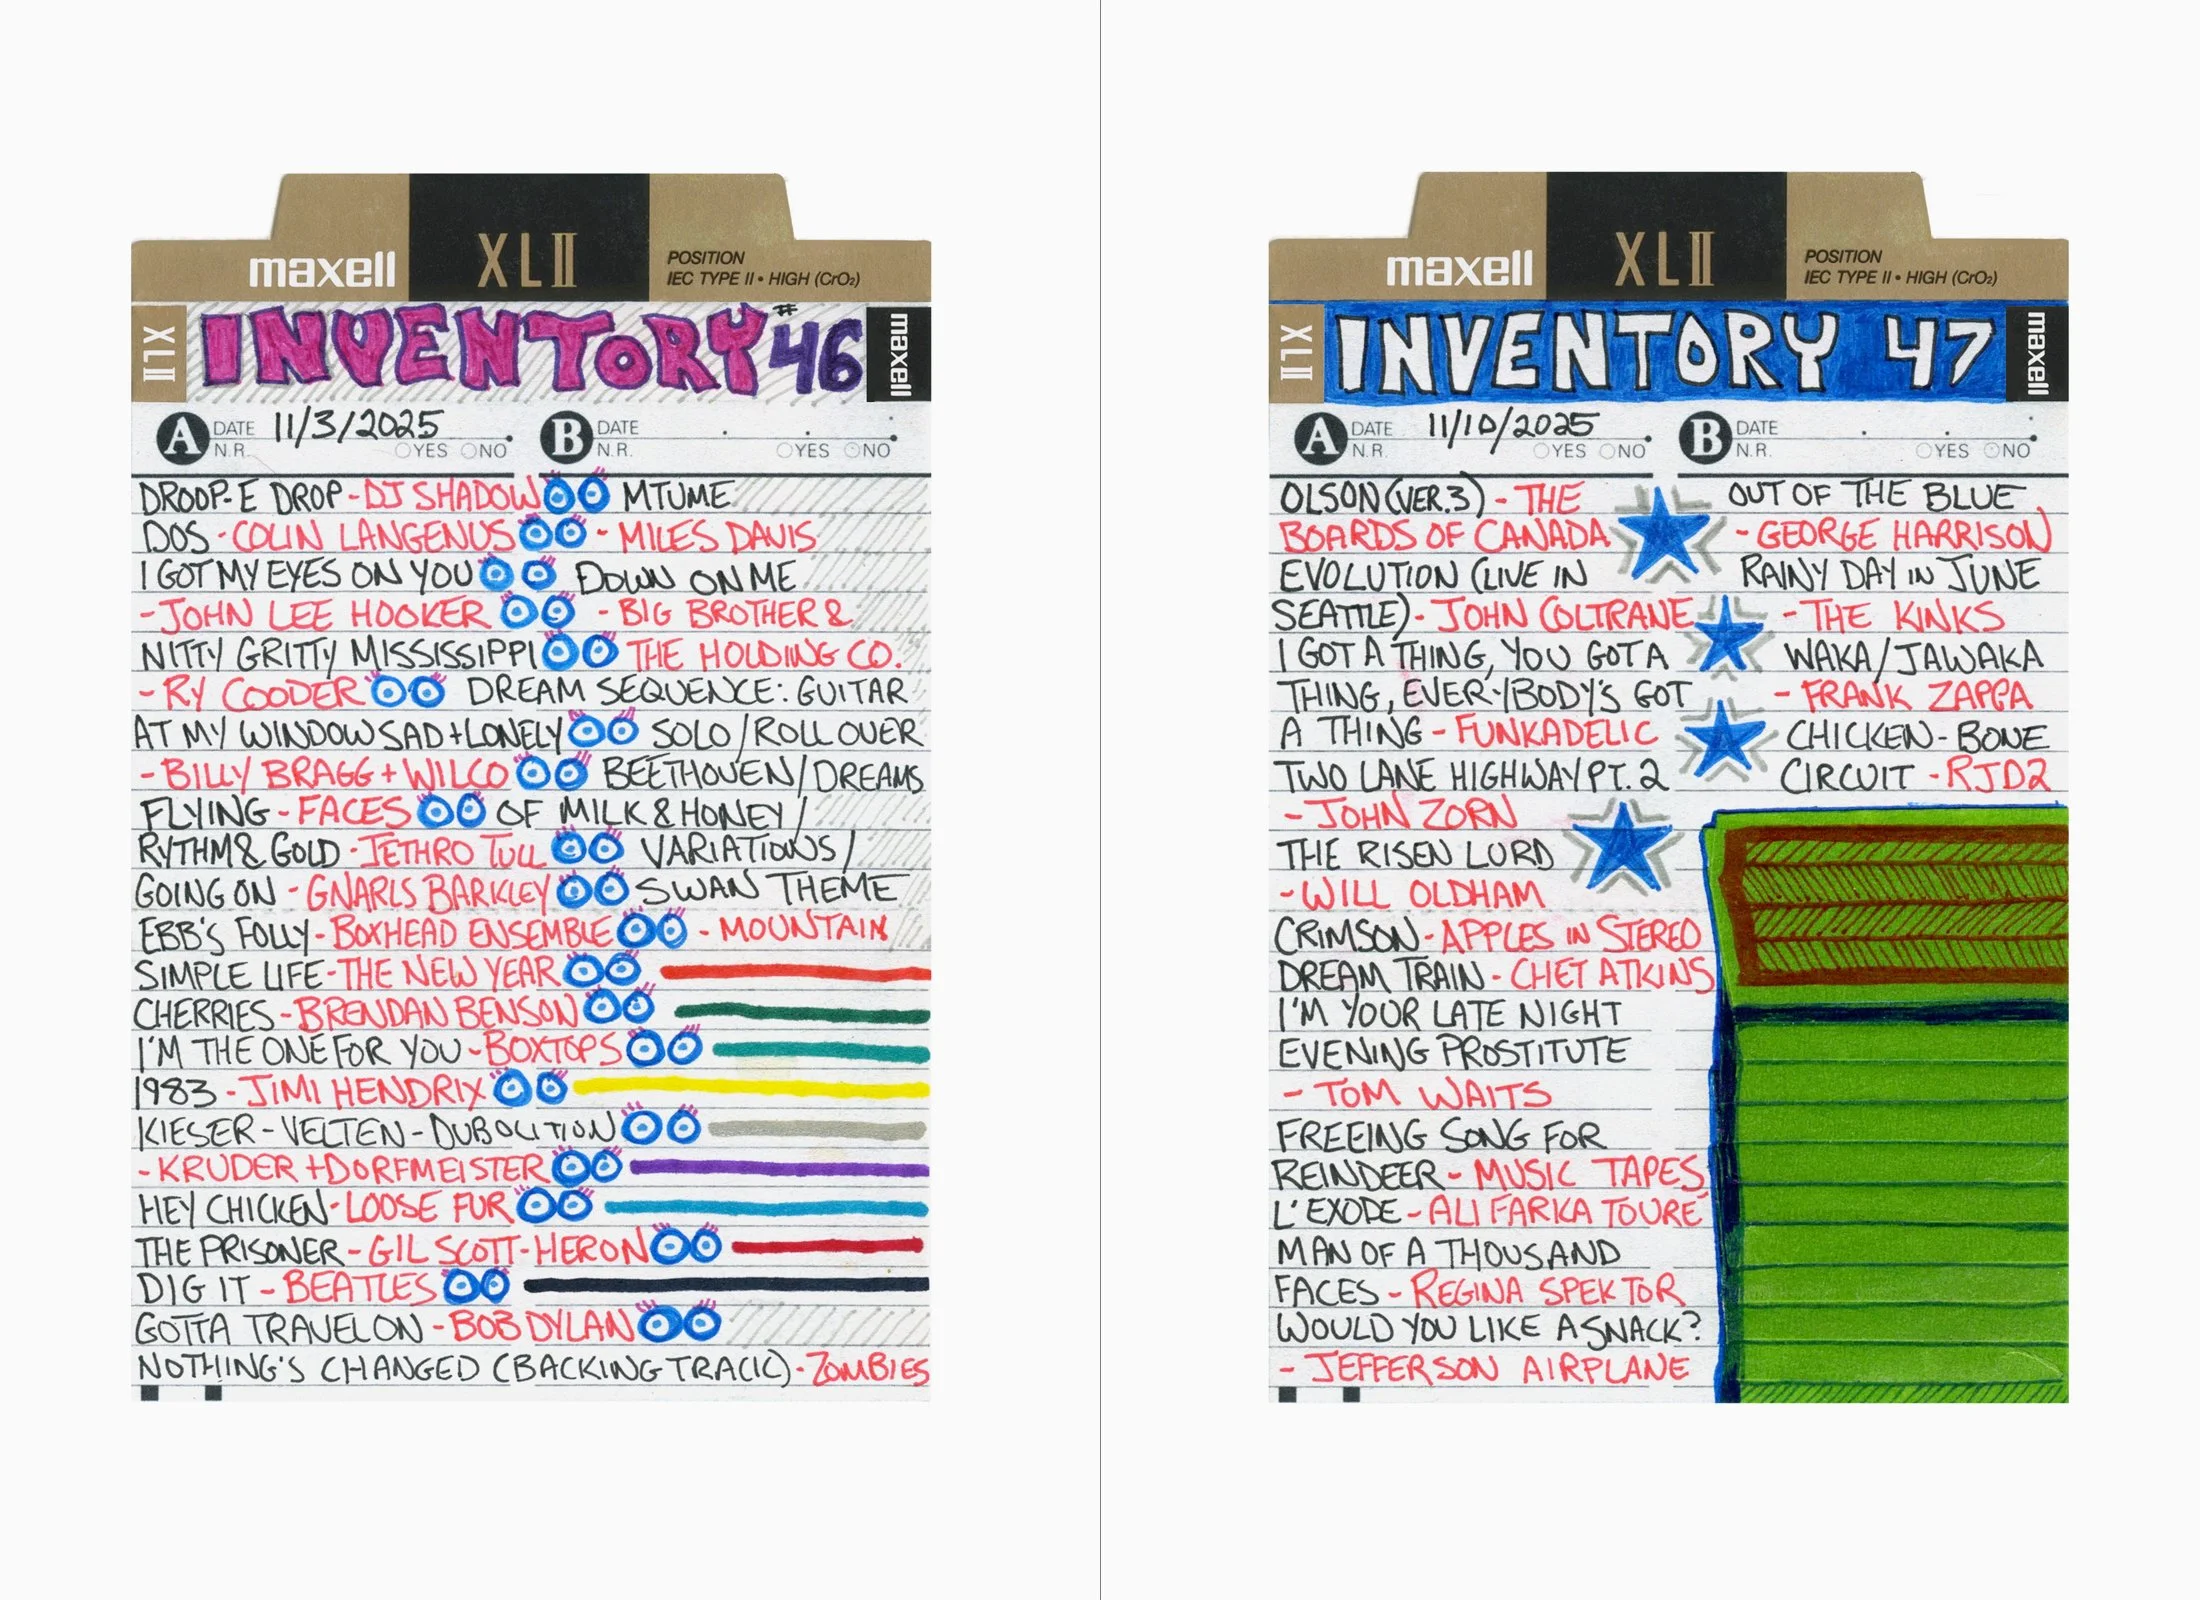 maxell
XLII
POSITION
IEC TYPE II • HIGH (CrO₂)
XLII
INVENTORY #46
maxell
A DATE 11/3/2025
N.R. YES NO
B DATE
N.R. YES NO
DROOP-E DROP - DJ SHADOW
DOS - COLIN LANGENUS
I GOT MY EYES ON YOU
- JOHN LEE HOOKER
NITTY GRITTY MISSISSIPPI
- RY COODER
AT MY WINDOW SAD + LONELY
- BILLY BRAGG + WILCO
FLYING - FACES
RYTHM & GOLD - JETHRO TULL
GOING ON - GNARLS BARKLEY
EBB'S FOLLY - BOXHEAD ENSEMBLE
SIMPLE LIFE - THE NEW YEAR
CHERRIES - BRENDAN BENSON
I'M THE ONE FOR YOU - BOXTOPS
1983 - JIMI HENDRIX
KIESER - VELTEN - DUBOLITION
- KRUDER + DORFMEISTER
HEY CHICKEN - LOOSE FUR
THE PRISONER - GIL SCOTT-HERON
DIG IT - BEATLES
GOTTA TRAVEL ON - BOB DYLAN
NOTHING'S CHANGED (BACKING TRACK) - ZOMBIES
MTUME
- MILES DAVIS
DOWN ON ME
- BIG BROTHER &
THE HOLDING CO.
DREAM SEQUENCE: GUITAR
SOLO / ROLL OVER
BEETHOVEN / DREAMS
OF MILK & HONEY /
VARIATIONS /
SWAN THEME
- MOUNTAIN
maxell
XLII
POSITION
IEC TYPE II • HIGH (CrO₂)
XLII
INVENTORY 47
maxell
A DATE 11/10/2025
N.R. YES NO
B DATE
N.R. YES NO
OLSON (VER.3) - THE
BOARDS OF CANADA
EVOLUTION (LIVE IN
SEATTLE) - JOHN COLTRANE
I GOT A THING, YOU GOT A
THING, EVERYBODY'S GOT
A THING - FUNKADELIC
TWO LANE HIGHWAY PT. 2
- JOHN ZORN
THE RISEN LORD
- WILL OLDHAM
CRIMSON - APPLES IN STEREO
DREAM TRAIN - CHET ATKINS
I'M YOUR LATE NIGHT
EVENING PROSTITUTE
- TOM WAITS
FREEING SONG FOR
REINDEER - MUSIC TAPES
L'EXODE - ALI FARKA TOURE
MAN OF A THOUSAND
FACES - REGINA SPEKTOR
WOULD YOU LIKE A SNACK?
- JEFFERSON AIRPLANE
OUT OF THE BLUE
- GEORGE HARRISON
RAINY DAY IN JUNE
- THE KINKS
WAKA/JAWAKA
- FRANK ZAPPA
CHICKEN-BONE
CIRCUIT - RJD2